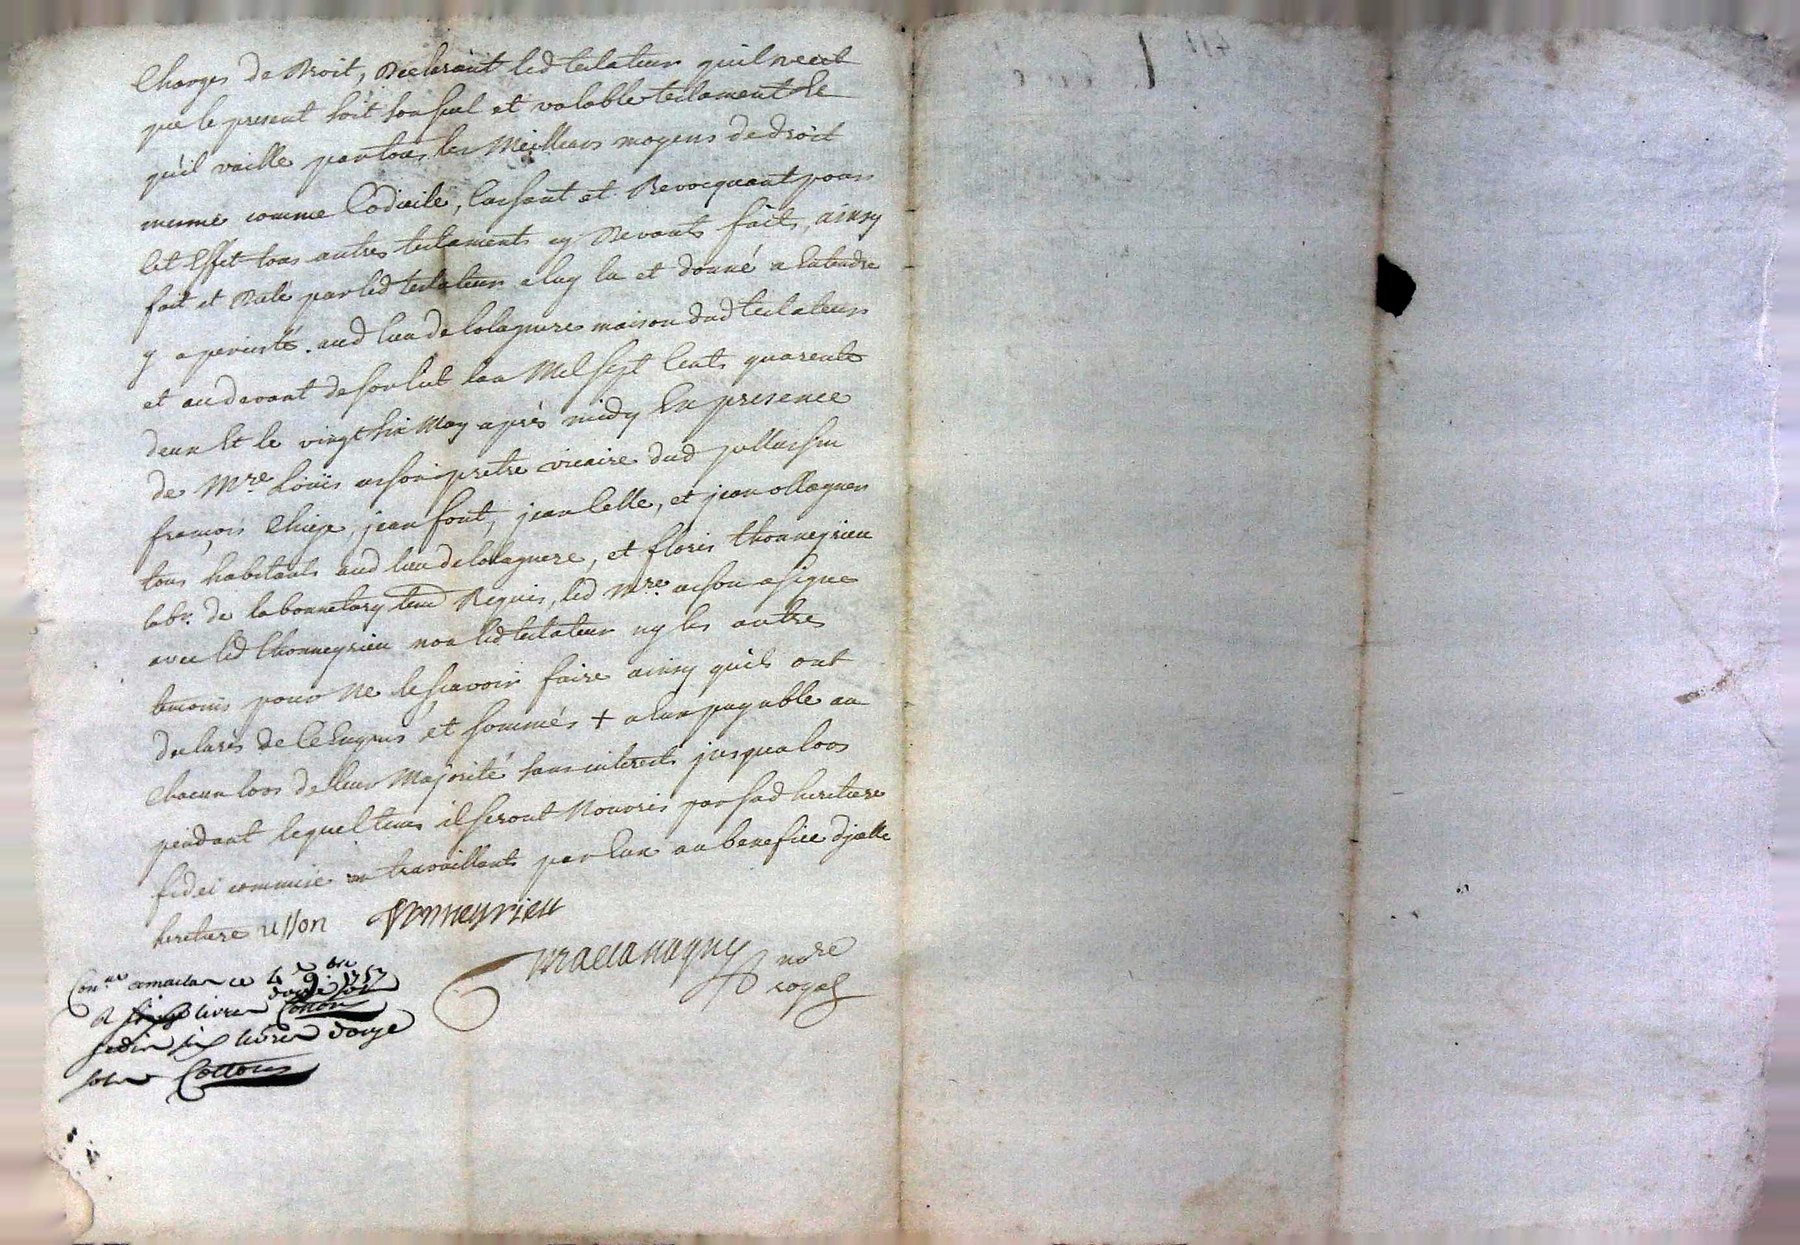 Charges de droit, declarant led testateur quil veut
que le present soit son seul et valable testament et
quil vaille par tous les meilleurs moyens de droit
mesme comme Codicile, Cassant et Revocquant pour
cet Effet tous autres testaments cy devants faits, ainsy
fait et dicté par led testateur a luy lu et donné a entendre
y a percisté. aud lieu de maison dud testateur
et au devant de son lit lan Mil sept Cents quarente
deux Et le vingt six May après midy En presence
de Mre Louis usson pretre vicaire dud
françois jean font, jean Celle, et jean ollagner
tous habitants aud lieu de, et floris thonneyrieu
labr. de la bonnetary Requis, led Mre usson a signé
avec led thonneyrieu non led testateur ny les autres
temoins pour ne le scavoir faire ainsy quils ont
declarés de ce Enquis et sommés + a eux payable au
chacun lors de leur Majorité sans interests jusqualors
pendant lequel tems ils seront Nourris par sad heritiere
fidei commise en travaillants par Eux au benefice dycelle
heritiere usson thonneyrieu
nore
royal
Conlle ce le 9 bre 1757
R livres douze sols Cottons
six livres douze
sols Cottons